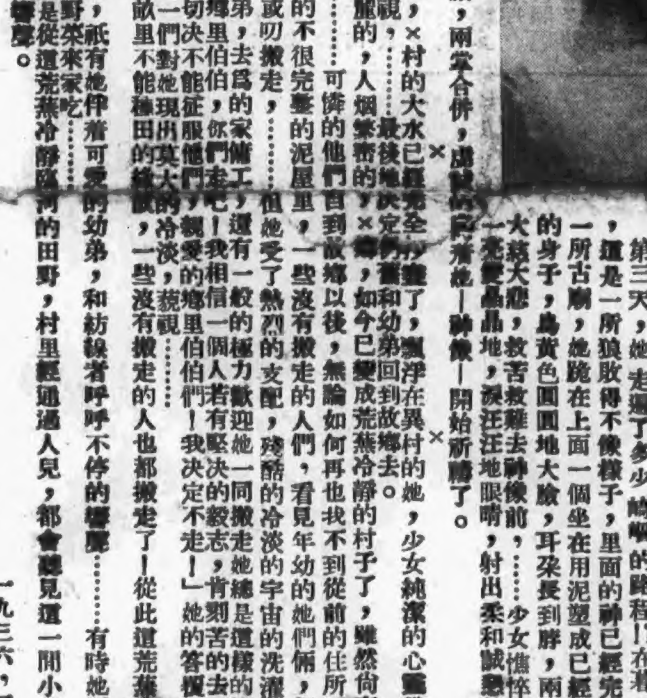 第三天,她走遍了多少的路程!在
,這是一所狼敗得不像樣子,里面的神已經完
一所古廟,她跪在上面一個坐在用泥塑成已經
的身子,為黃色圓圓地大臉,耳朶長到脖,兩
大慈大悲,救苦救難去神像前,⋯⋯少女憔悴
晶晶地,淚汪汪地眼睛,射出柔和誠懇
,兩掌合併,虔誠的向着她—神像—開始祈禱了。
× ×
,×村的大水已經完全了,飄浮在異村的她,少女純潔的心靈
視,⋯⋯最後地决定和幼弟回到故鄉去。
的,人烟繁密的,×,如今已變成荒蕪冷靜的村子了,雖然尙
⋯⋯可憐的他們自到故鄉以後,無論如何再也找不到從前的住所
的不很完整的泥屋里,一些沒有搬走的人們,看見年幼的她們倆,
或叨搬走,⋯⋯但她受了熱烈的支配,殘酷的冷淡的宇宙的洗濯
弟,去爲的家傭工,還有一般的極力歡迎她一同搬走她總是這樣的
鄉里伯伯,你們走吧!我相信一個人若有堅决的毅志,肯刻苦的去
切决不能征服他們,親愛的鄉里伯伯們!我决定不走!」她的答覆
一們對她現出莫大的冷淡,藐視⋯⋯
畝里不能種田的,一些沒有搬走的人也都搬走了!從此這荒蕪
,祇有她伴着可愛的幼弟,和紡線者呼呼不停的響聲⋯⋯有時她
野菜來家吃⋯⋯
是從這荒蕪冷靜臨河的田野,村里經通過人兒,都會聽見這一間小
響聲。
一九三六,